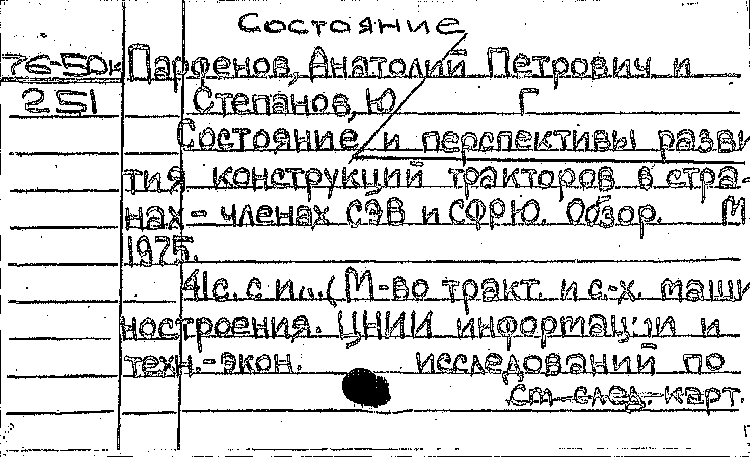 Состояние
76-50к Парфенов, Анатолий Петрович и
251 Степанов, Ю Г
Состояние и перспективы разви
тия конструкций тракторов в стра-
нах - членах СЭВ и СФРЮ. Обзор. М
1975.
41с. с ил. (М-во тракт. и с.-х. маши
ностроения. ЦНИИ информации и
техн.-экон. исследований по
См след. карт.